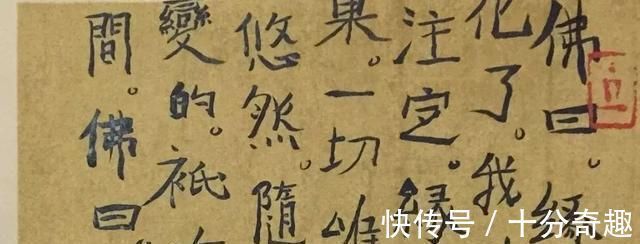 佛曰。緣
化了。我
注定。緣
果。一切唯
悠然。隨
變的。祇
間。佛曰
快传号 / 十分奇趣